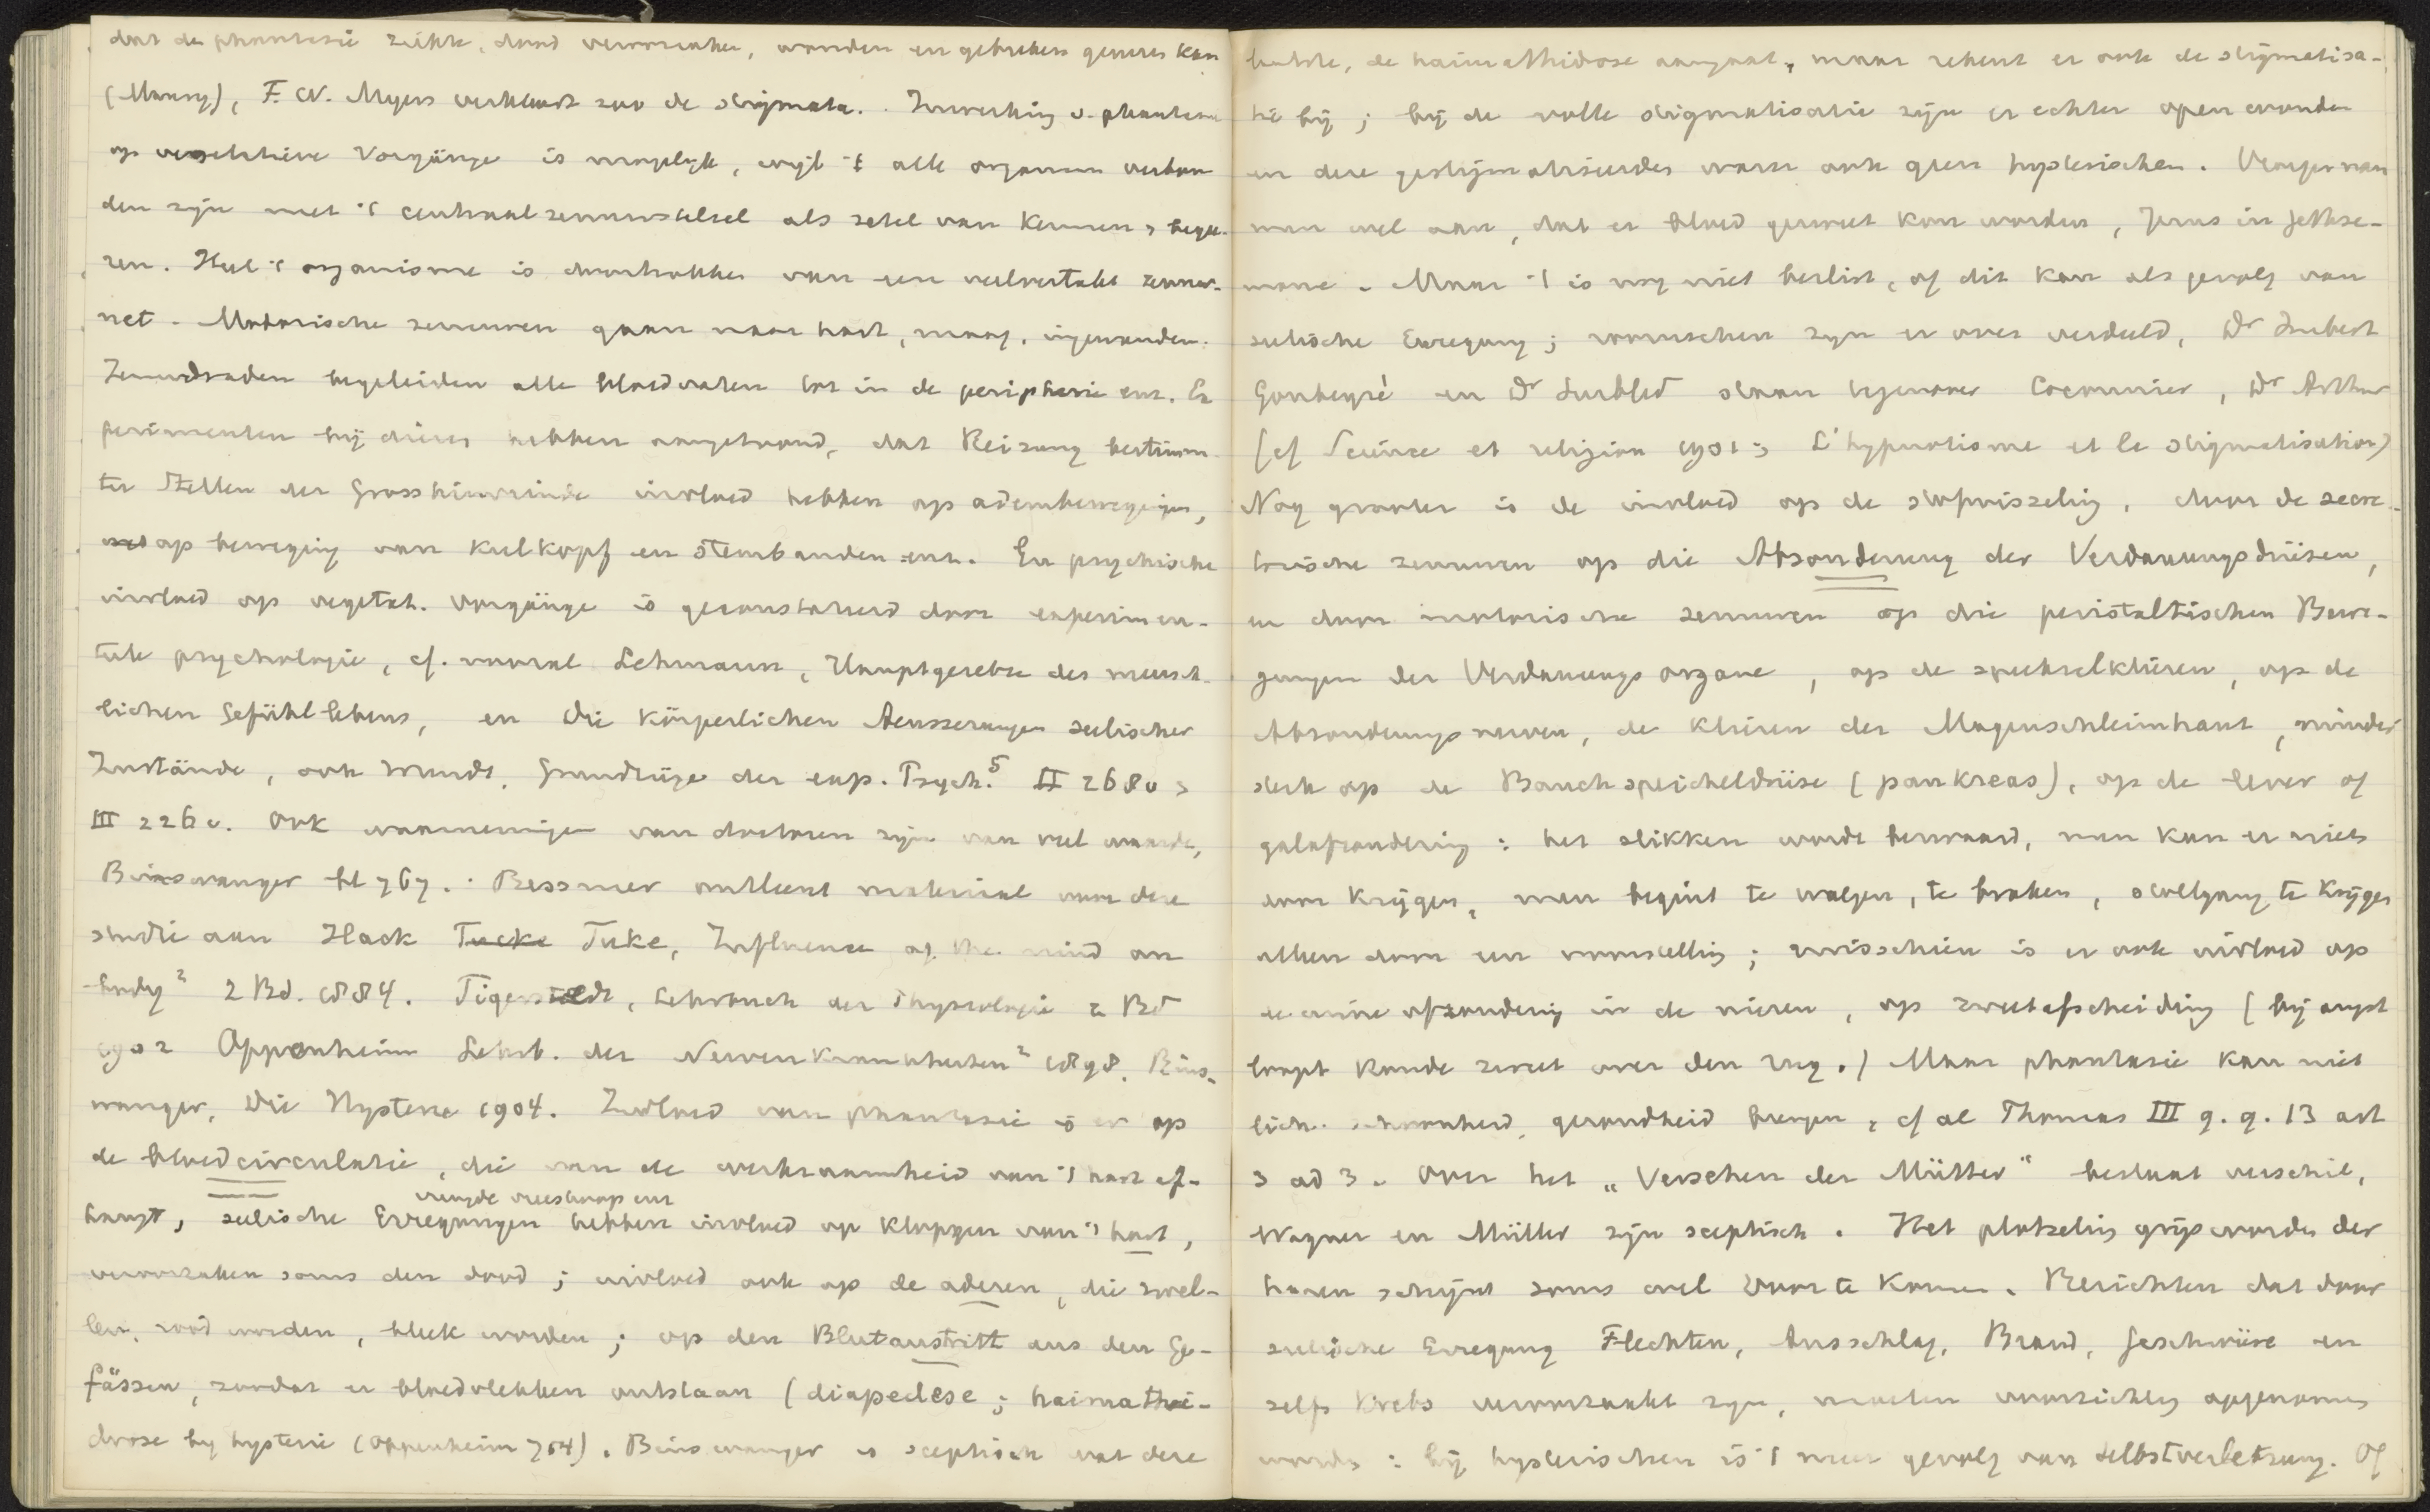 dat de phantasie ziekte, dood veroorzaken, wonden en gebreken genezen kan
(Maury), F. W. Myers verklaart zoo de stigmata. Inwerking v. phantasie
op vegetatieve Vorgänge is mogelijk, wijl 't alle organen verbon
den zijn met 't centraal zenuwstelsel als zetel van kennen & begee-
ren. Heel 't organisme is doortrokken van een veelvertakt zenuw-
net. Motorische zenuwen gaan naar hart, maag, ingewanden.
Zenuwdraden begeleiden alle bloedvaten tot in de peripherie enz. Ex
perimenten bij dieren hebben aangetoond, dat Reizung bestimm-
ter Stellen der Grosshirnrinde invloed hebben op adembewegingen,
op beweging van Kulkopf en stembanden enz. En psychische
invloed op vegetat. Vorgänge is geconstateerd door experimen-
teele psychologie, cf. vooral Lehmann, Hauptgesetze des mensch-
lichen Gefühllebens, en Die körperlichen Aeusserungen seelischer
Zustände, ook Wundt, Grundzüge der exp. Psych.⁵ II 268v &
III 226v. Ook waarnemingen van doctoren zijn van veel waarde,
Binswanger bl 767. Bessmer ontleent materiaal voor deze
studie aan Hack Tucke Tuke, Influence of the mind on
body² 2 Bd. 1884. Tigerstedt, Lehrbuch der Physiologie 2 Bd
1902 Oppenheim Lehrb. der Nervenkrankheiten² 1898. Bins-
wanger, Die Hysterie 1904. Invloed van phantasie is er op
de bloedcirculatie, die van de werkzaamheid van 't hart af-
vreugde vrees hoop enz
hangt, seelische Erregungen hebben invloed op kloppen van 't hart,
veroorzaken soms den dood; invloed ook op de aderen, die zwel-
len, rood worden, bleek worden; op den Blutaustritt aus den Ge-
fässen, zoodat er bloedvlekken ontstaan (diapedese; haimathi-
drose bij hysterie (Oppenheim 764). Binswanger is sceptisch wat deze
laatste, de haimathidrose aangaat, maar rekent er ook de stigmatisa-
tie bij; bij de volle stigmatisatie zijn er echter open wonden
en deze gestigmatiseerden waren ook geen hysterischen. Vroeger nam
men wel aan, dat er bloed gezweet kon worden, Jezus in Gethse-
mane. Maar 't is nog niet beslist, of dit kan als gevolg van
seelische Erregung; roomschen zijn er over verdeeld, Dr Imbert
Goubeyré en Dr Surbled staan tegenover Cocounier, Dr Arthur
(cf Science et religion 1901 & L'hypnotisme et le stigmatisation)
Nog grooter is de invloed op de stofwisseling, door de secre-
torische zenuwen op die Absonderung der Verdauungsdrüsen,
en door motorische zenuwen op die peristaltischen Bewe-
gungen der Verdauungsorgane, op de speekselklieren, op de
Absonderungsnerven, de klieren der Magenschleimhaut, minder
sterk op de Bauchspeicheldrüse (pankreas), op de lever of
galafzondering: het slikken wordt bezwaard, men kan er niets
door krijgen, men begint te walgen, te braken, stoelgang te krijgen
alleen door een voorstelling; misschien is er ook invloed op
de urine afzondering in de nieren, op zweetafscheiding (bij angst
loopt koude zweet over den rug.) Maar phantasie kan niet
lich. schoonheid, gezondheid brengen, cf al Thomas III q. q. 13 art
3 ad 3. Over het „Versehen der Mütter" bestaat verschil,
Wagner en Müller zijn sceptisch. Het plotseling grijs worden der
haren schijnt soms wel voor te komen. Berichten dat door
seelische Erregung Flechten, Ausschlag, Brand, Geschwüre en
zelfs Krebs veroorzaakt zijn, moeten voorzichtig opgenomen
worden: bij hysterischen is 't meer gevolg van Selbstverletzung. Of